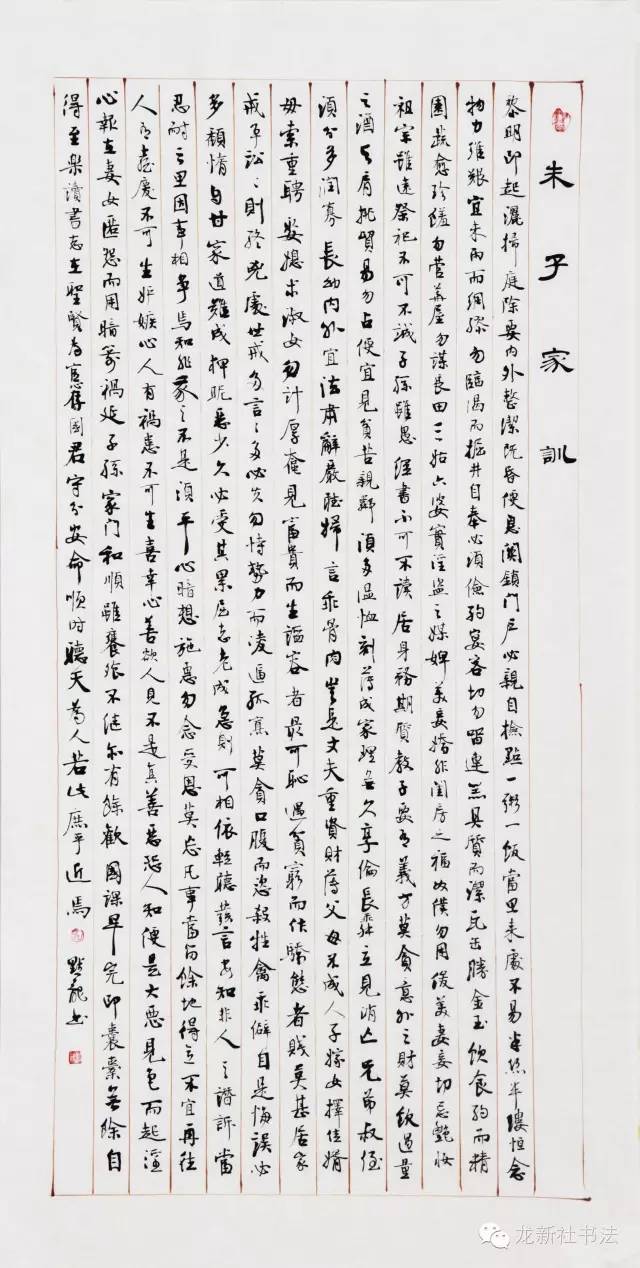 朱子家訓
黎明即起灑掃庭除要內外整潔既昏便息關鎖門戶必親自檢點一粥一飯當思來處不易半絲半縷恒念
物力維艱宜未雨而綢繆勿臨渴而掘井自奉必須儉約宴客切勿留連器具質而潔瓦缶勝金玉飲食約而精
園蔬愈珍饈勿營華屋勿謀良田三姑六婆實淫盜之媒婢美妾嬌非閨房之福奴僕勿用俊美妻妾切忌艷妝
祖宗雖遠祭祀不可不誠子孫雖愚經書不可不讀居身務期質教子要有義方莫貪意外之財莫飲過量
之酒與肩挑貿易勿占便宜見貧苦親鄰須多溫恤刻薄成家理無久享倫長乖立見消亡兄弟叔侄
須分多潤寡長幼內外宜法肅辭嚴聽婦言乖骨肉豈是丈夫重資財薄父母不成人子嫁女擇佳婿
毋索重聘娶媳求淑女勿計厚奩見富貴而生諂容者最可恥遇貧窮而作驕態者賤莫甚居家
戒爭訟訟則終凶處世戒多言言多必失勿恃勢力而凌逼孤寡莫貪口腹而恣殺牲禽乖僻自是悔誤必
多頹惰自甘家道難成狎昵惡少久必受其累屈志老成急則可相依輕聽發言安知非人之譖訴當
忍耐三思因事相爭焉知非我之不是須平心暗想施惠勿念受恩莫忘凡事當留餘地得意不宜再往
人有喜慶不可生妒嫉心人有禍患不可生喜幸心善欲人見不是真善惡恐人知便是大惡見色而起淫
心報在妻女匿怨而用暗箭禍延子孫家門和順雖饔飧不繼亦有餘歡國課早完即囊橐無餘自
得至樂讀書志在聖賢為官存國君守分安命順時聽天為人若此庶乎近焉 默龍書
龙新社书法